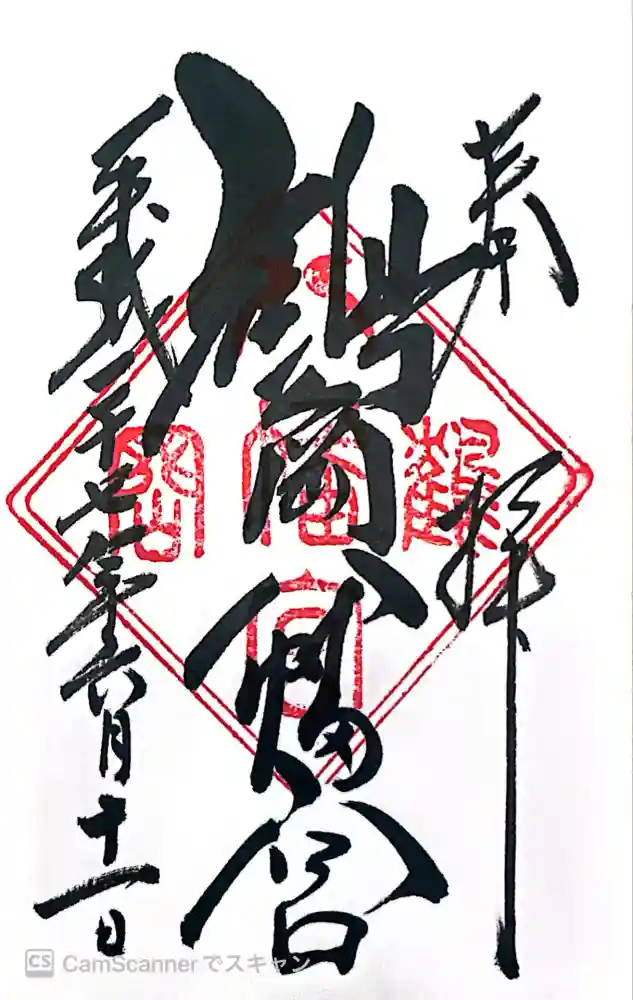 奉拝
鶴岡八幡宮
平成二十七年六月十一日
CS CamScannerでスキャン